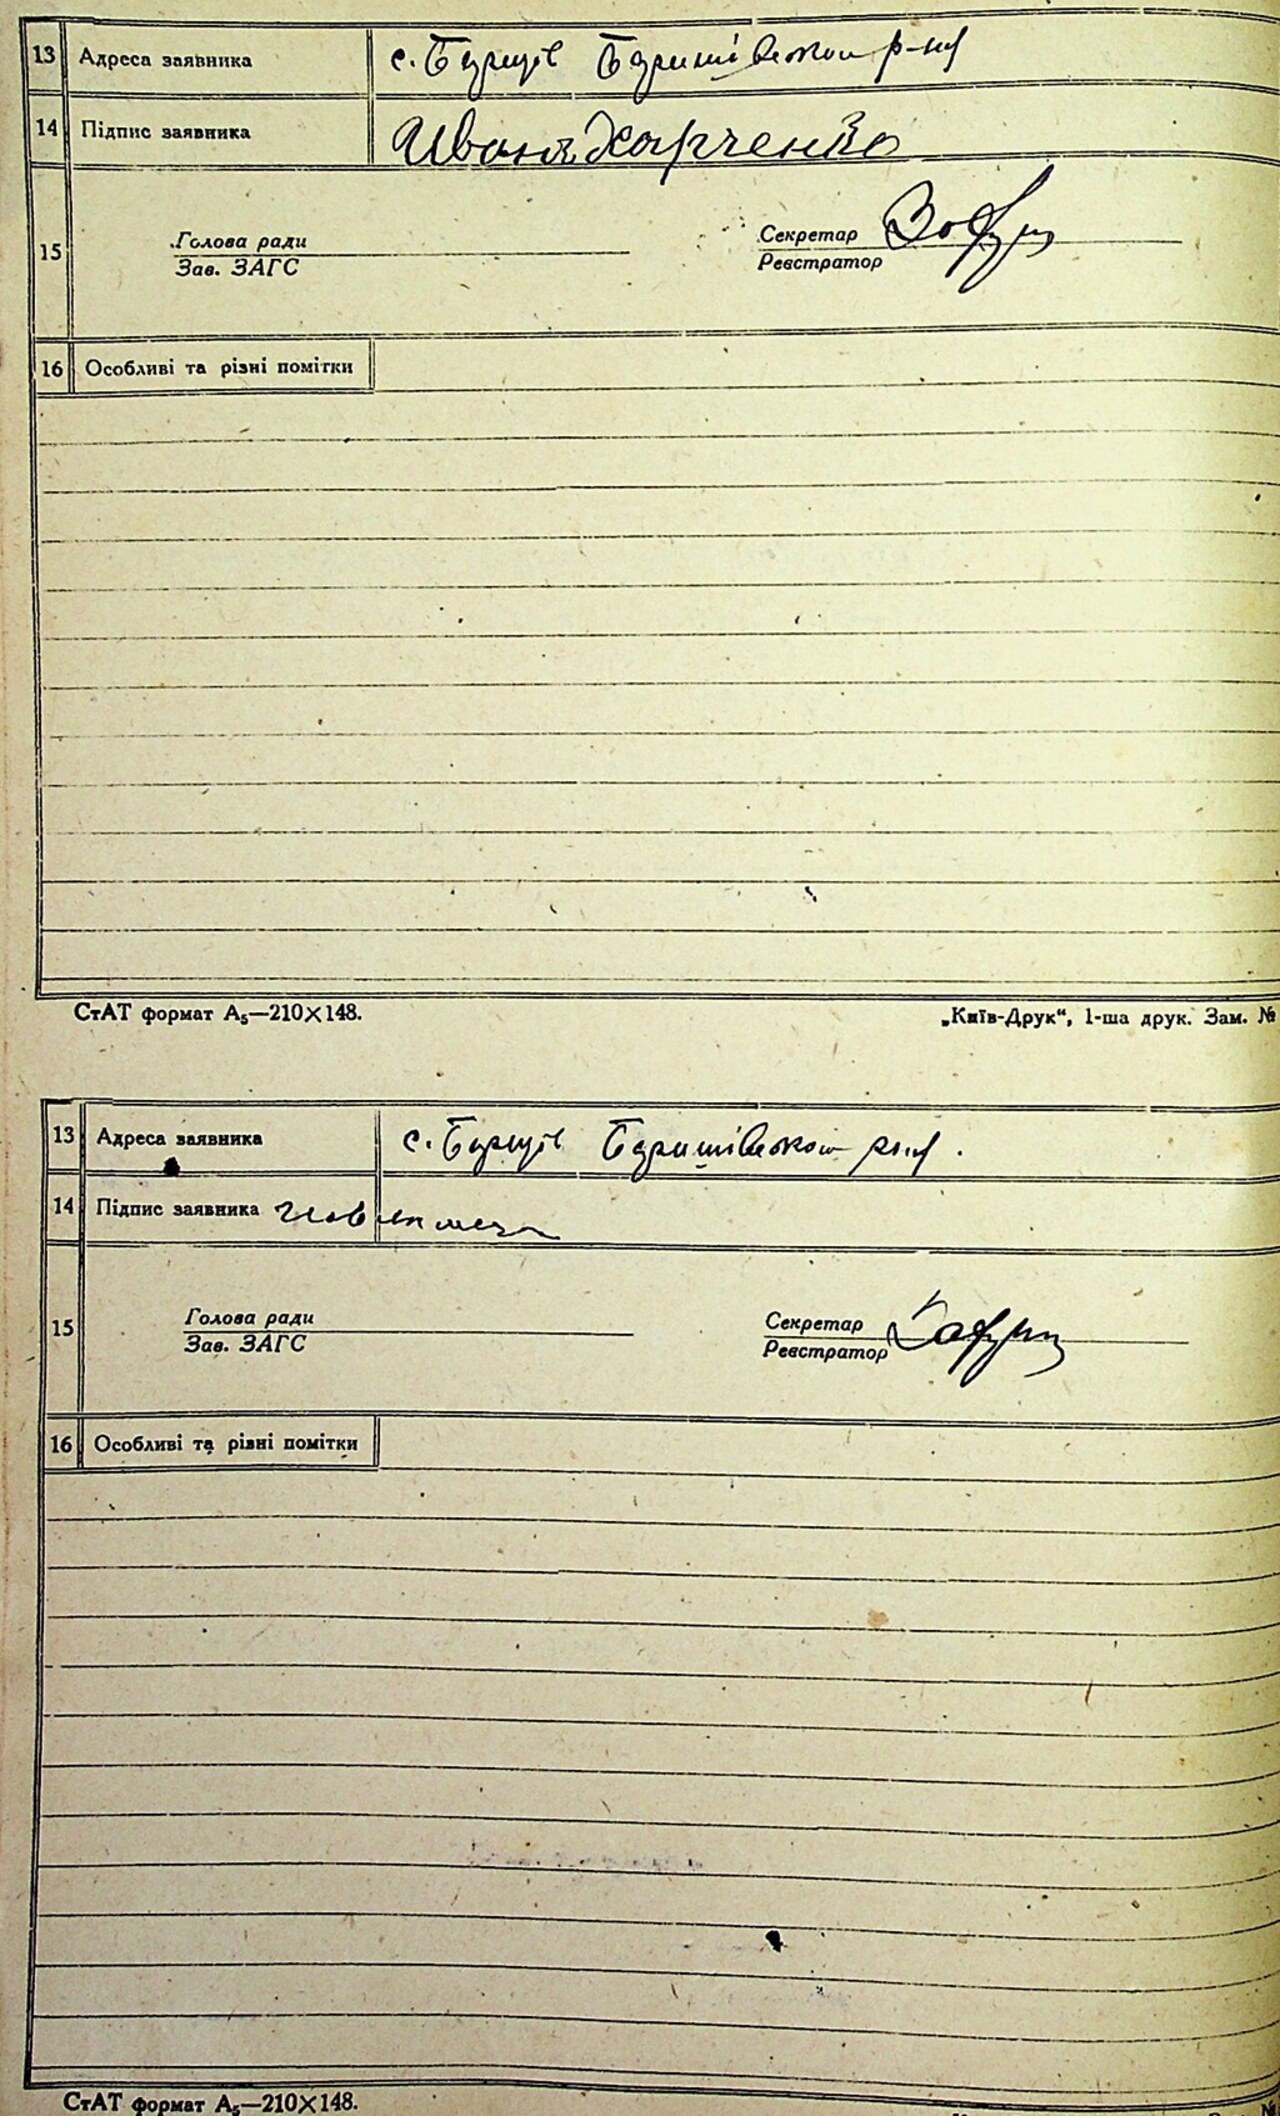 13 Адреса заявника с. Борщів Баришівського р-ну
14 Підпис заявника Иван Харченко
15 Голова ради Секретар
Зав. ЗАГС Реєстратор
16 Особливі та різні помітки
СтАТ формат А5—210×148. „Київ-Друк“, 1-ша друк. Зам. №
13 Адреса заявника с. Борщів Баришівського р-ну.
14 Підпис заявника
15 Голова ради Секретар
Зав. ЗАГС Реєстратор
16 Особливі та різні помітки
СтАТ формат А5—210×148.